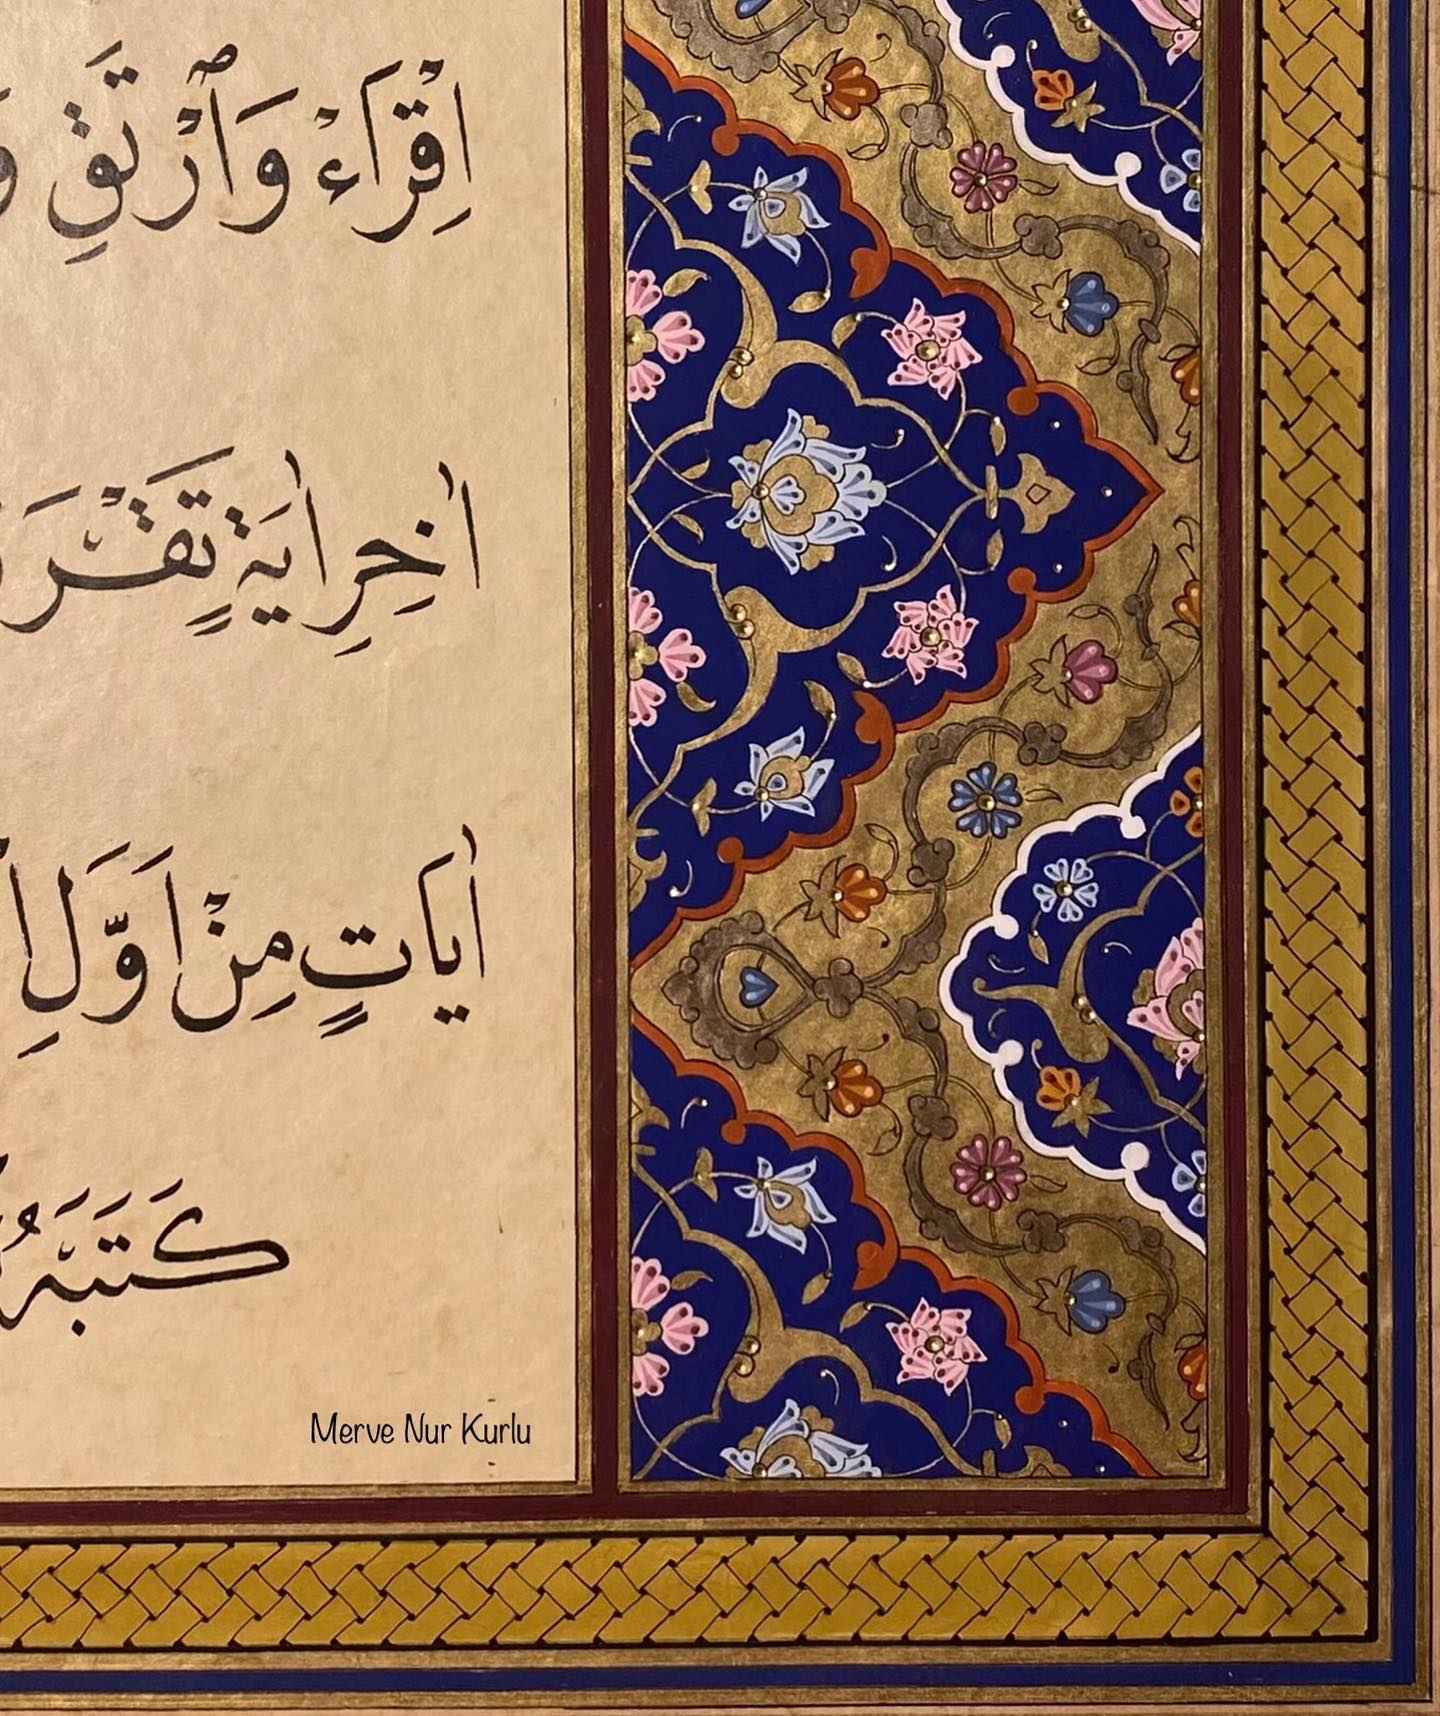 اِقْرَاءْ وَٱرْتَقِ
اٰخِرِ اٰيَةٍ تَقْرَ
اٰيَاتٍ مِنْ اَوَّلِ
كَتَبَهُ
Merve Nur Kurlu